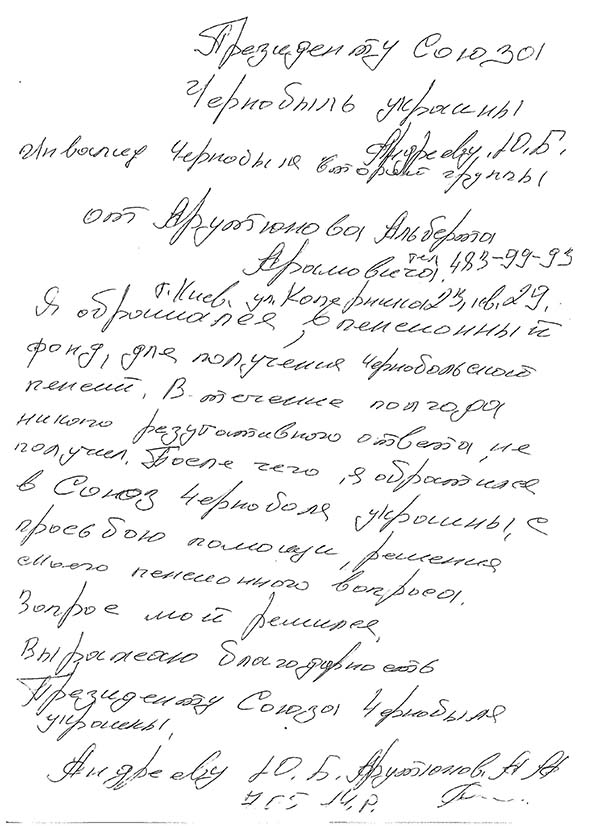 Президенту Союза
Чернобыль украины
Андрееву Ю.Б.
Инвалид Чернобыля второй группы
от Арутюнова Альберта
Арамовича. тел 483-99-93
г. Киев. ул. Коперника 23, кв. 29.
Я обращался, в пенсионный
фонд, для получения Чернобольской
пенсий. В течение полгода
никого резутативного ответа, не
получил. После чего, я обратился
в Союз Черноболя украины, с
просьбою помощи, решения
своего пенсионного вопроса.
Вопрос мой решился,
Выражаю благодарность
Президенту Союза Чернобыля
украины,
Андрееву Ю. Б. Арутюнов. А А
14.р.